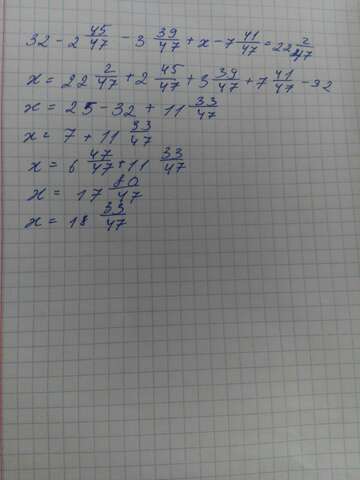 32 - 2 45/47 - 3 39/47 + x - 7 41/47 = 22 2/47
x = 22 2/47 + 2 45/47 + 3 39/47 + 7 41/47 - 32
x = 25 - 32 + 11 33/47
x = 7 + 11 33/47
x = 6 47/47 + 11 33/47
x = 17 80/47
x = 18 33/47